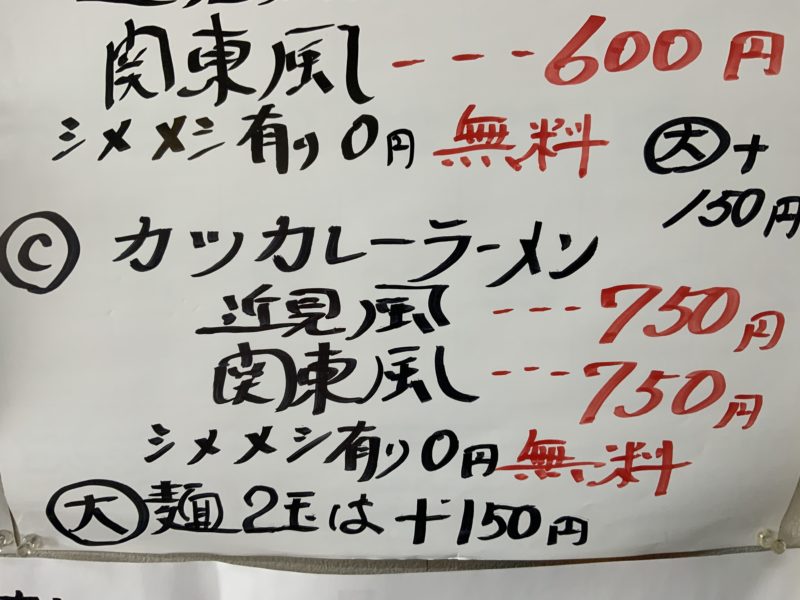 関東風---600円
シメメシ有り0円 無料 大+
150円
C カツカレーラーメン
近見風---750円
関東風---750円
シメメシ有り0円 無料
大 麺2玉は+150円